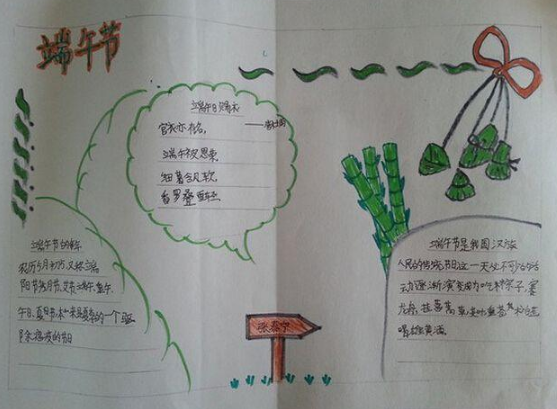 端午节
端午日赐衣
官衣亦有名，
端午被恩荣
细葛含风软
香罗叠雪轻
端午节的
农历5月初5，又称端
阳节
午日、夏节，本来是夏季的一个驱
除瘟疫的节日
端午节是我国汉族
人民的传统节日这一天必不可少的活
动逐渐演变成为吃粽子、赛
龙舟、挂菖蒲
喝雄黄酒